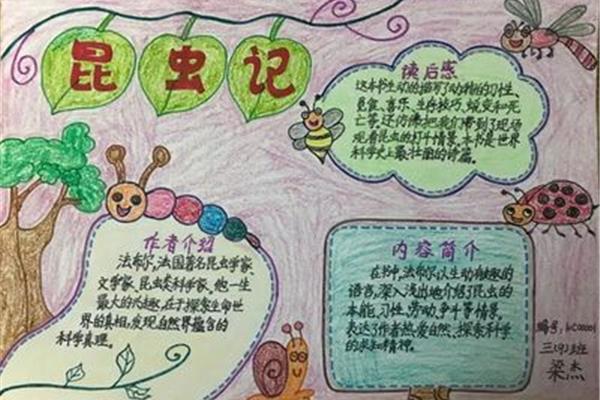 昆虫记
读后感
这本书生动的描写了动物的习性、
觅食、喜乐、生存技巧、蜕变和死
亡等,还仿佛把我们带到了现场
观看昆虫的打斗情景。本书是世界
科学史上最壮丽的诗篇。
作者介绍
法布尔,法国著名昆虫学家、
文学家、昆虫类科学家,他一生
最大的兴趣,在于探索生命世
界的真相,发现自然界蕴含的
科学真理。
内容简介
在书中,法布尔以生动有趣的
语言,深入浅出地介绍了昆虫的
本能、习性、劳动、争斗等情景,
表达了作者热爱自然、探索科学
的求知精神。
编号:
三(9)班
梁杰